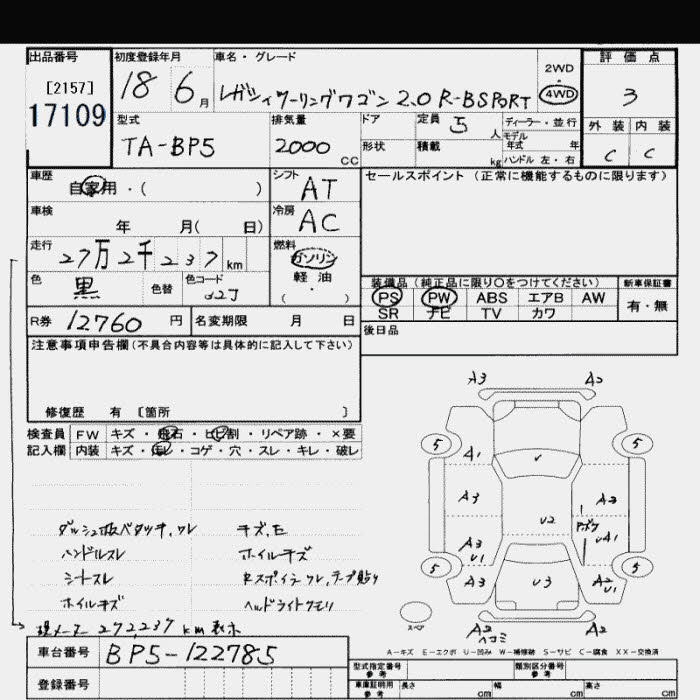 出品番号 初度登録年月 車名・グレード 2WD 評価点
[2157] 18 6月 レガシィツーリングワゴン 2.0 R-BSPORT 4WD 3
17109 型式 排気量 ドア 定員 5人 ディーラー・並行 外装 内装
TA-BP5 2000CC 形状 積載 kg モデル年式 年 C C
ハンドル 左・右
車歴 自家用・( ) シフト AT セールスポイント (正常に機能するものに限ります)
車検 年 月( 日) 冷房 AC
走行 27万2千237km 燃料 ガソリン
色 黒 色替 色コード 32J 軽油 ( )
装備品 (純正品に限り○をつけてください) 新車保証書
PS PW ABS エアB AW 有・無
SR ナビ TV カワ
R券 12760円 名変期限 月 日 後日品
注意事項申告欄(不具合内容等は具体的に記入して下さい)
修復歴 有 〔箇所 〕
検査員 FW キズ・飛石・ヒビ割・リペア跡・×要
記入欄 内装 キズ・汚レ・コゲ・穴・スレ・キレ・破レ
A3 A2
5 5
A1
A3 U2 A3
A3 U1 A1
5 5
A3 U3 A2 U1
スペア A2 ヘコミ A2
ダッシュ板ベタツキ,ワレ キズ,モ
ハンドルスレ ホイルキズ
シートスレ Rスポイラーワレ,テープ貼り
ホイルキズ ヘッドライトクモリ
現メーター 272,237km表示
A-キズ E-エクボ U-凹み W-補修跡 S-サビ C-腐食 XX-交換済
車台番号 BP5-122785
型式指定番号 参考 類別区分番号 参考
登録番号 車庫証明用 参考 長さ cm 幅 cm 高さ cm